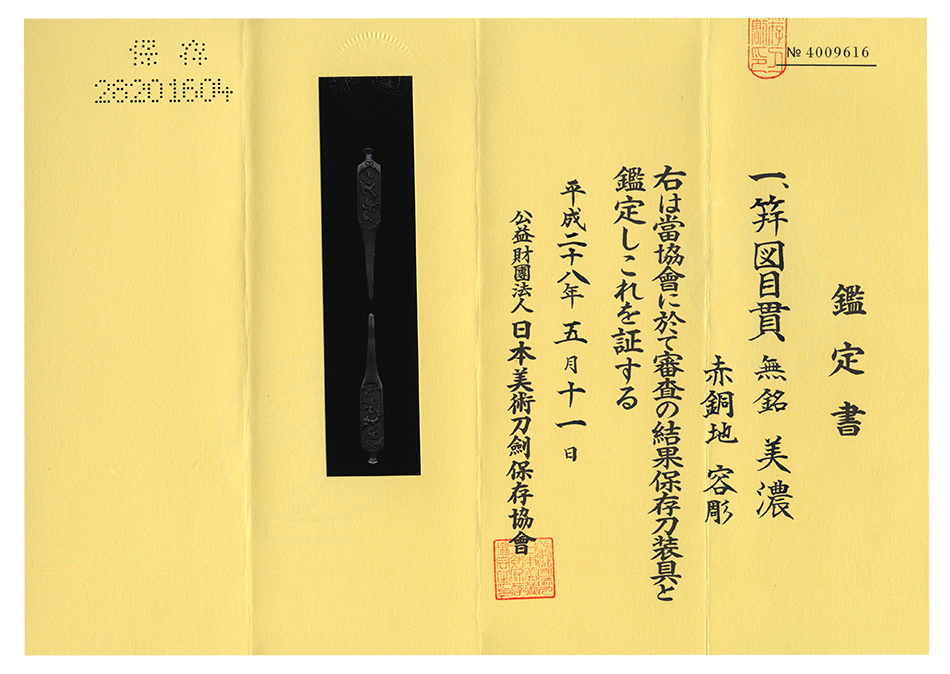 鑑定書
№ 4009616
一、笄図目貫 無銘 美濃
赤銅地 容彫
右は當協會に於て審査の結果保存刀装具と
鑑定しこれを証する
平成二十八年 五月十一日
公益財團法人 日本美術刀劍保存協會
保存
28201604